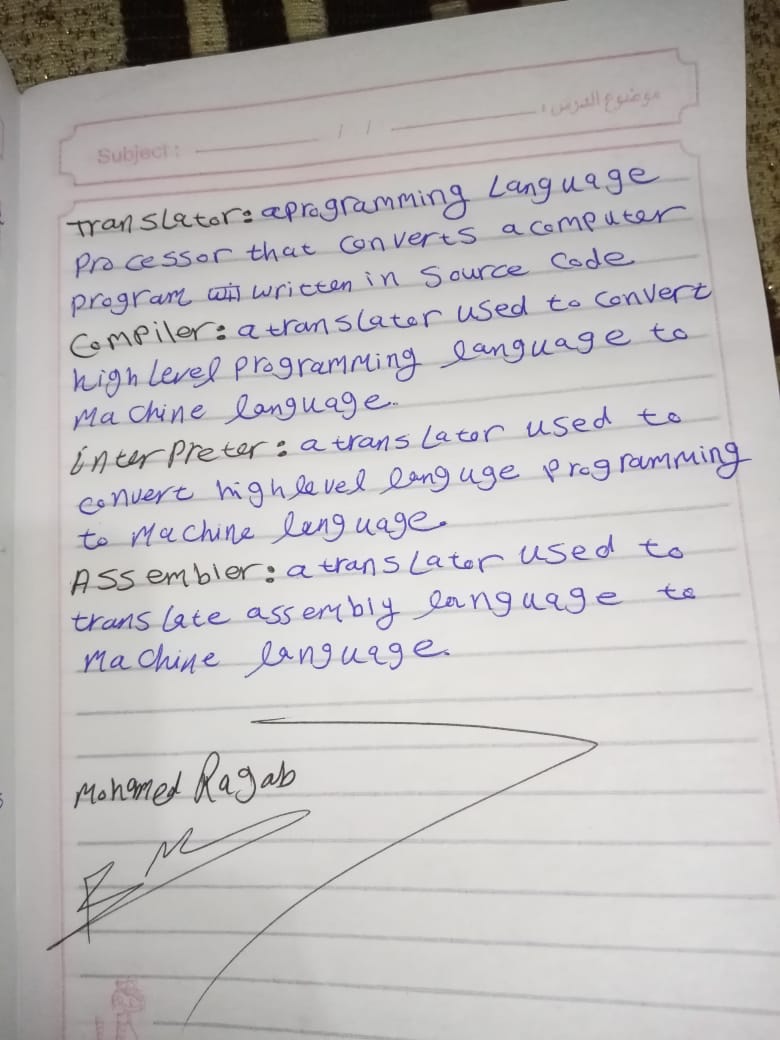 Subject :
/ /
موضوع الدرس :
translator: a programming Language
processor that converts a computer
program written in source code
Compiler: a translator used to convert
high level programming language to
Machine language.
interpreter: a translator used to
convert high level languge programming
to Machine language.
Assembler: a translator used to
translate assembly language to
Machine language.
Mohamed Ragab